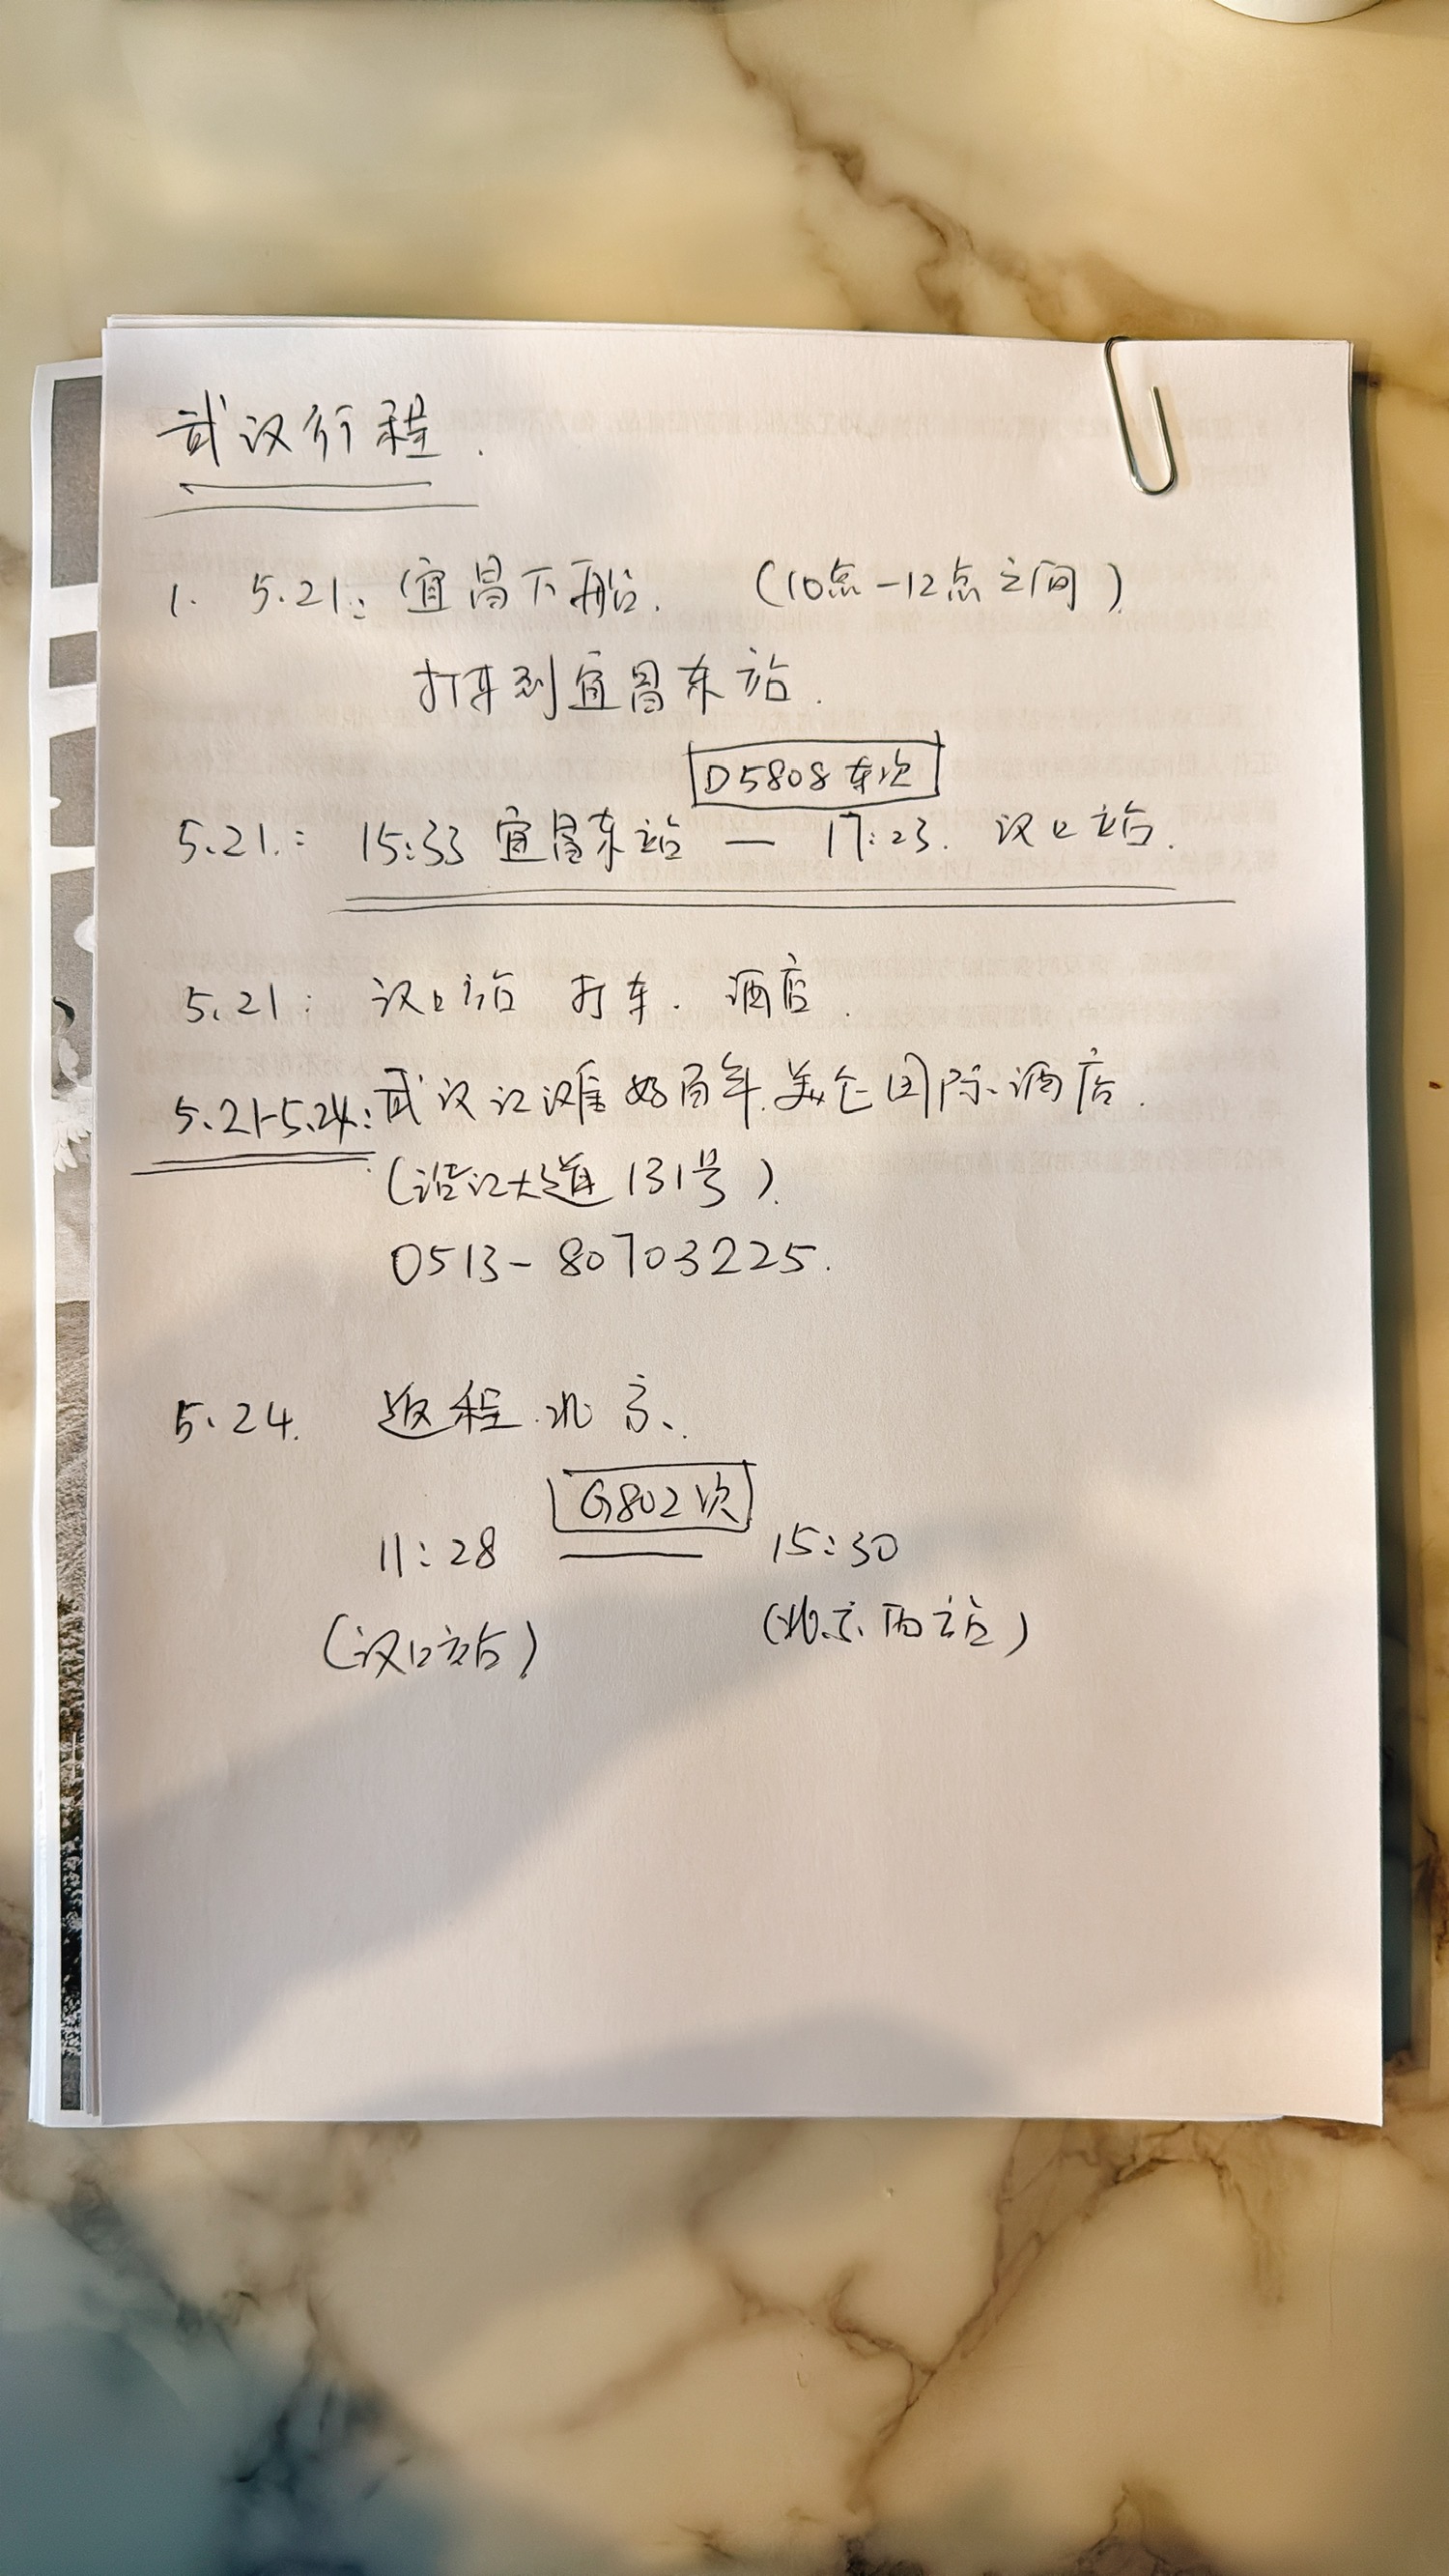 武汉行程.
1. 5.21: 宜昌下船. (10点-12点之间)
打车到宜昌东站.
D5808车次
5.21.: 15:33 宜昌东站 — 17:23. 汉口站.
5.21: 汉口站 打车. 酒店.
5.21-5.24: 武汉江滩好百年.美仑国际酒店.
(沿江大道131号)
0513-80703225.
5.24. 返程北京.
G802次
11:28 — 15:30
(汉口站) (北京西站)